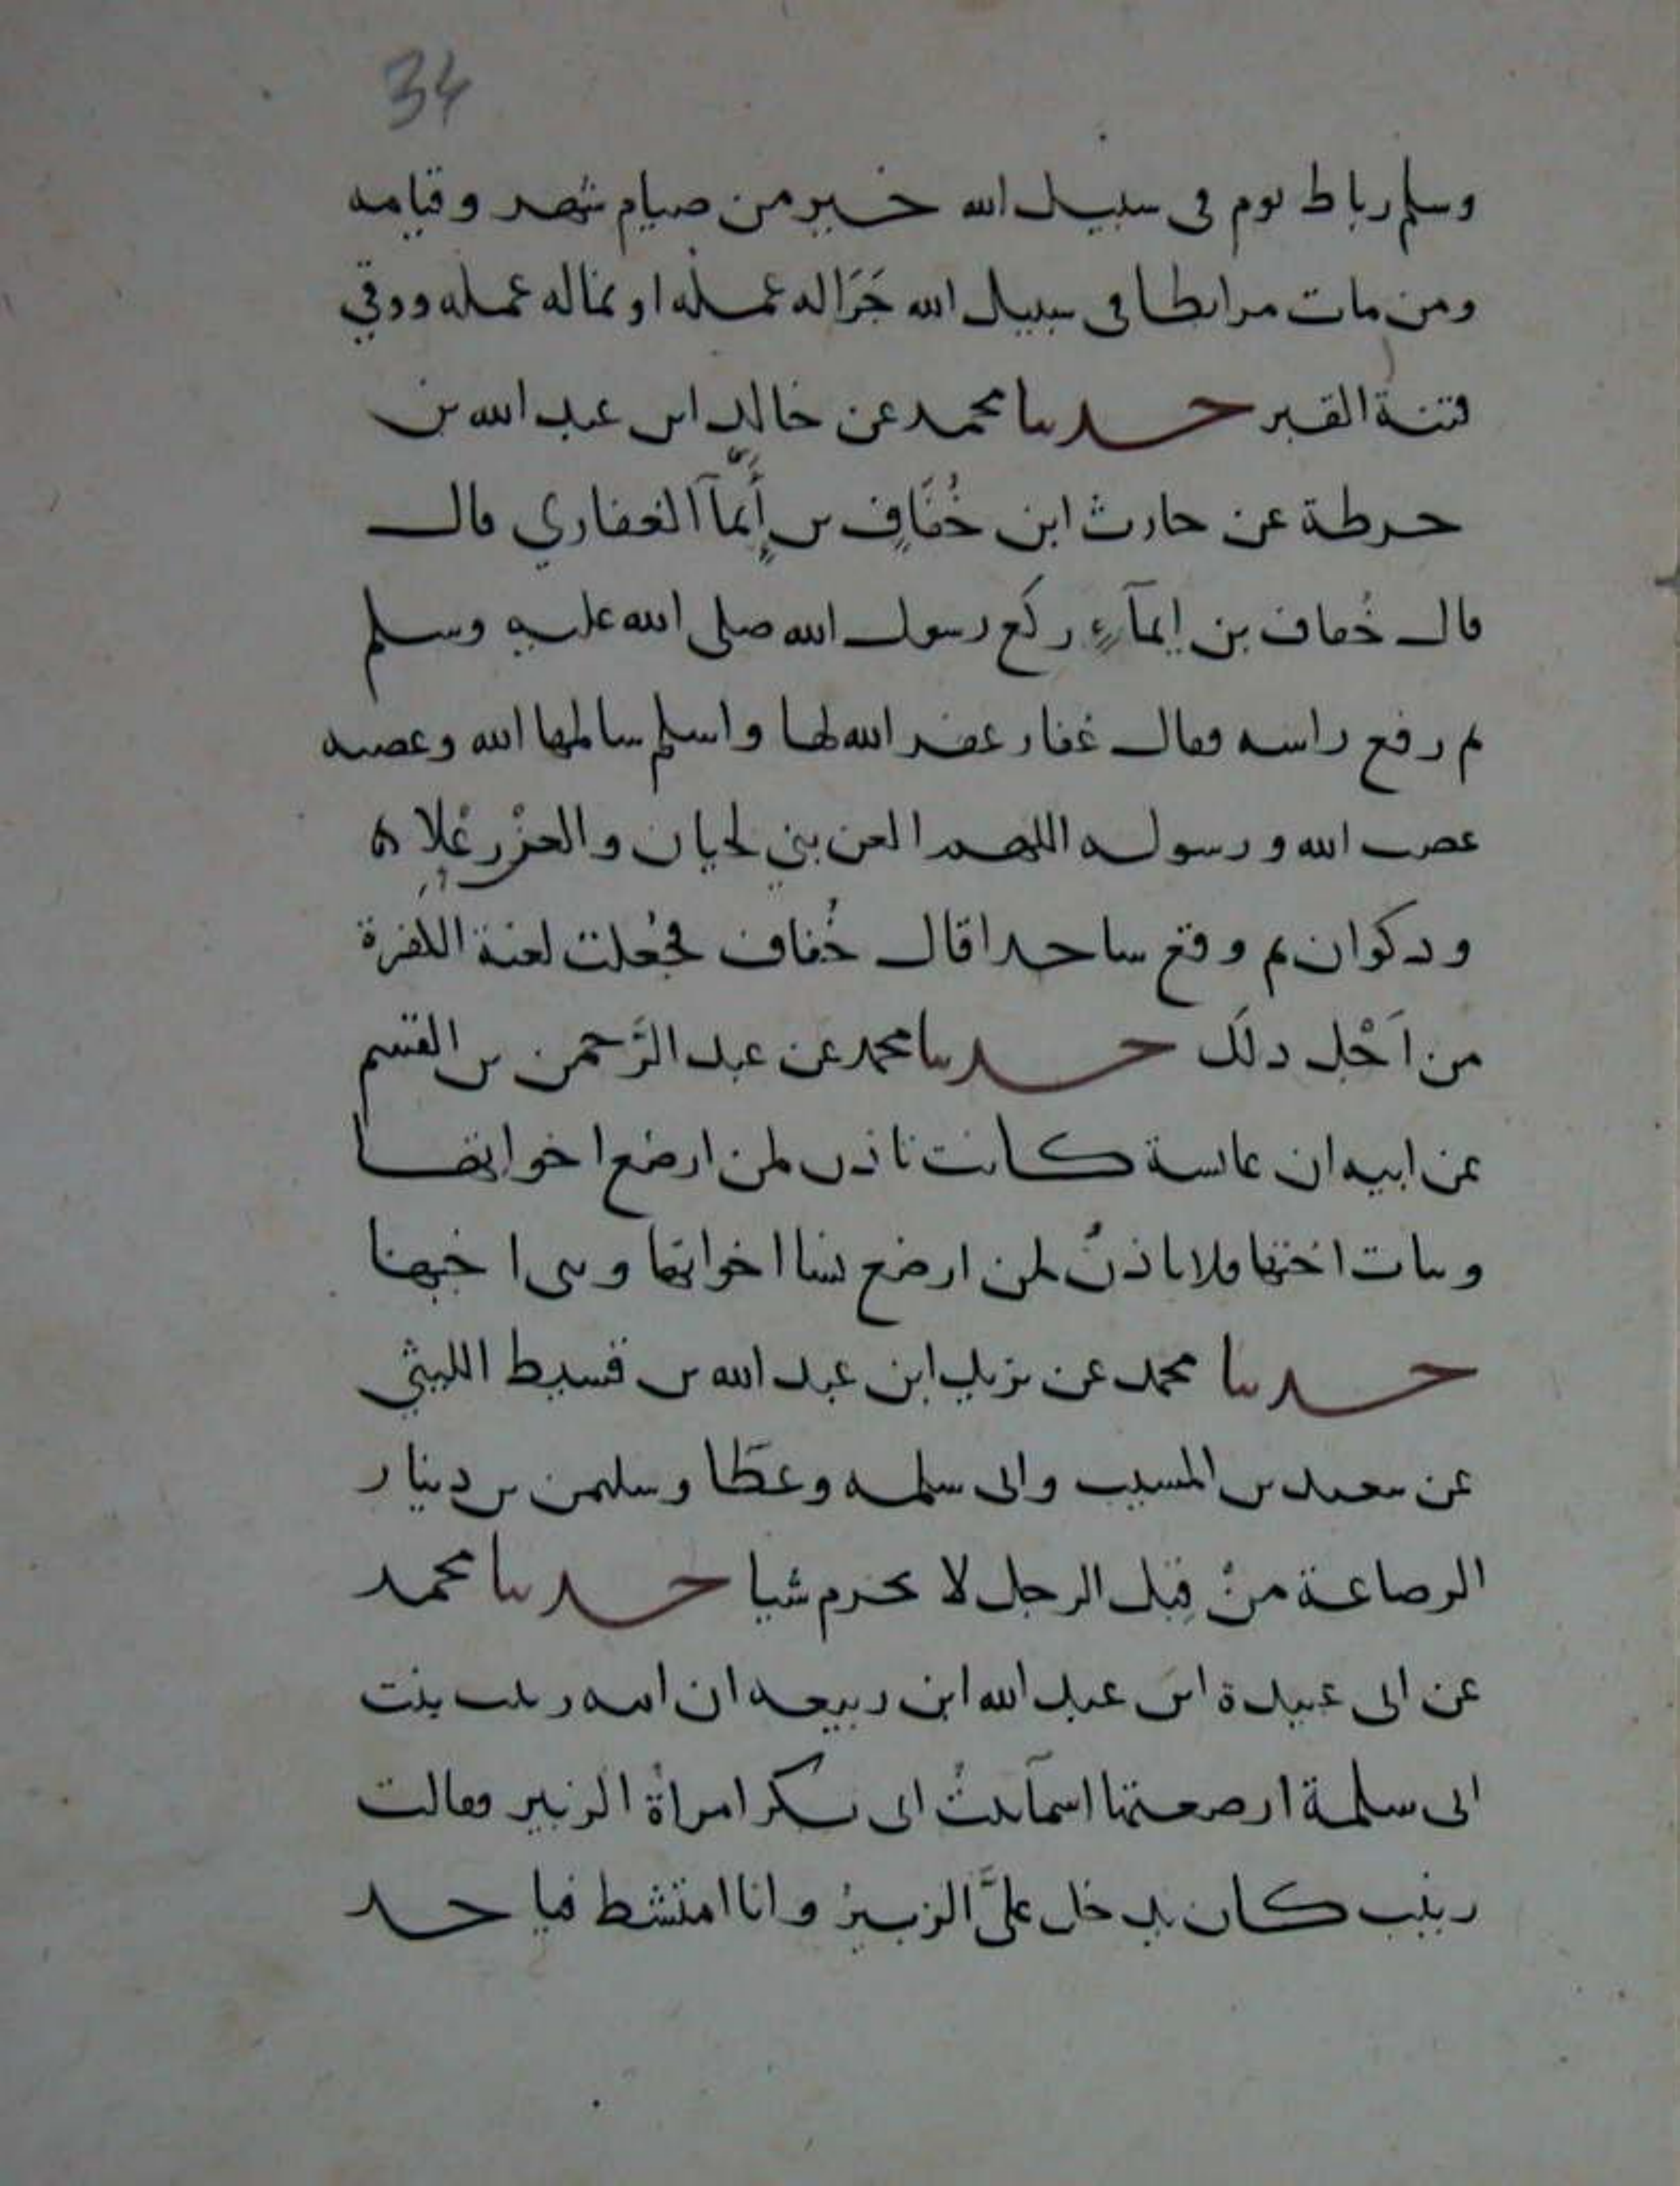 34
وسلم رباط يوم فى سبيل الله خير من صيام شهر وقيامه
ومن مات مرابطا فى سبيل الله جَرَا له عمله او نما له عمله ووقي
فتنة القبر حدثنا محمد عن خالد ابن عبد الله بن
حرملة عن حارث ابن خُفَافٍ بن إيمآ الغفاري قال
قال خُفاف بن ايمآءٍ ركع رسول الله صلى الله عليه وسلم
ثم رفع راسه فقال غفار غفر الله لها واسلم سالمها الله وعصيه
عصت الله ورسوله اللهم العن بني لحيان والعن رِعْلا
وذكوان ثم وقع ساجدا قال خُفاف فجُعلت لعنة الكفرة
من اَجْل ذلَك حدثنا محمد عن عبد الرَّحمن بن القسم
عن ابيه ان عائشة كانت تاذن لمن ارضع اخواتها
وبنات اختها ولا تاذنُ لمن ارضع نسا اخواتها وبنى اخيها
حدثنا محمد عن يزيد ابن عبد الله بن قسيط الليثي
عن سعيد بن المسيب وابى سلمه وعطَا وسليمن بن دينار
الرضاعة منْ قِبَل الرجل لا تحرم شيا حدثنا محمد
عن ابى عبيدة ابن عبد الله ابن ربيعه ان امه زينب بنت
ابى سلمة ارضعتها اسمآ بنتُ ابى بكر امراة الزبير فقالت
زينب كان يدخل علىَّ الزبيرُ وانا امتشط فياخذ